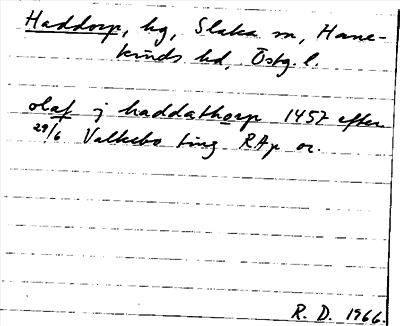 Haddorp, hg, Slaka sn, Hane-
kinds hd, Östg. l.
olaf j haddathorp 1457 efter
29/6 Valkebo ting RAp or.
R. D. 1966.